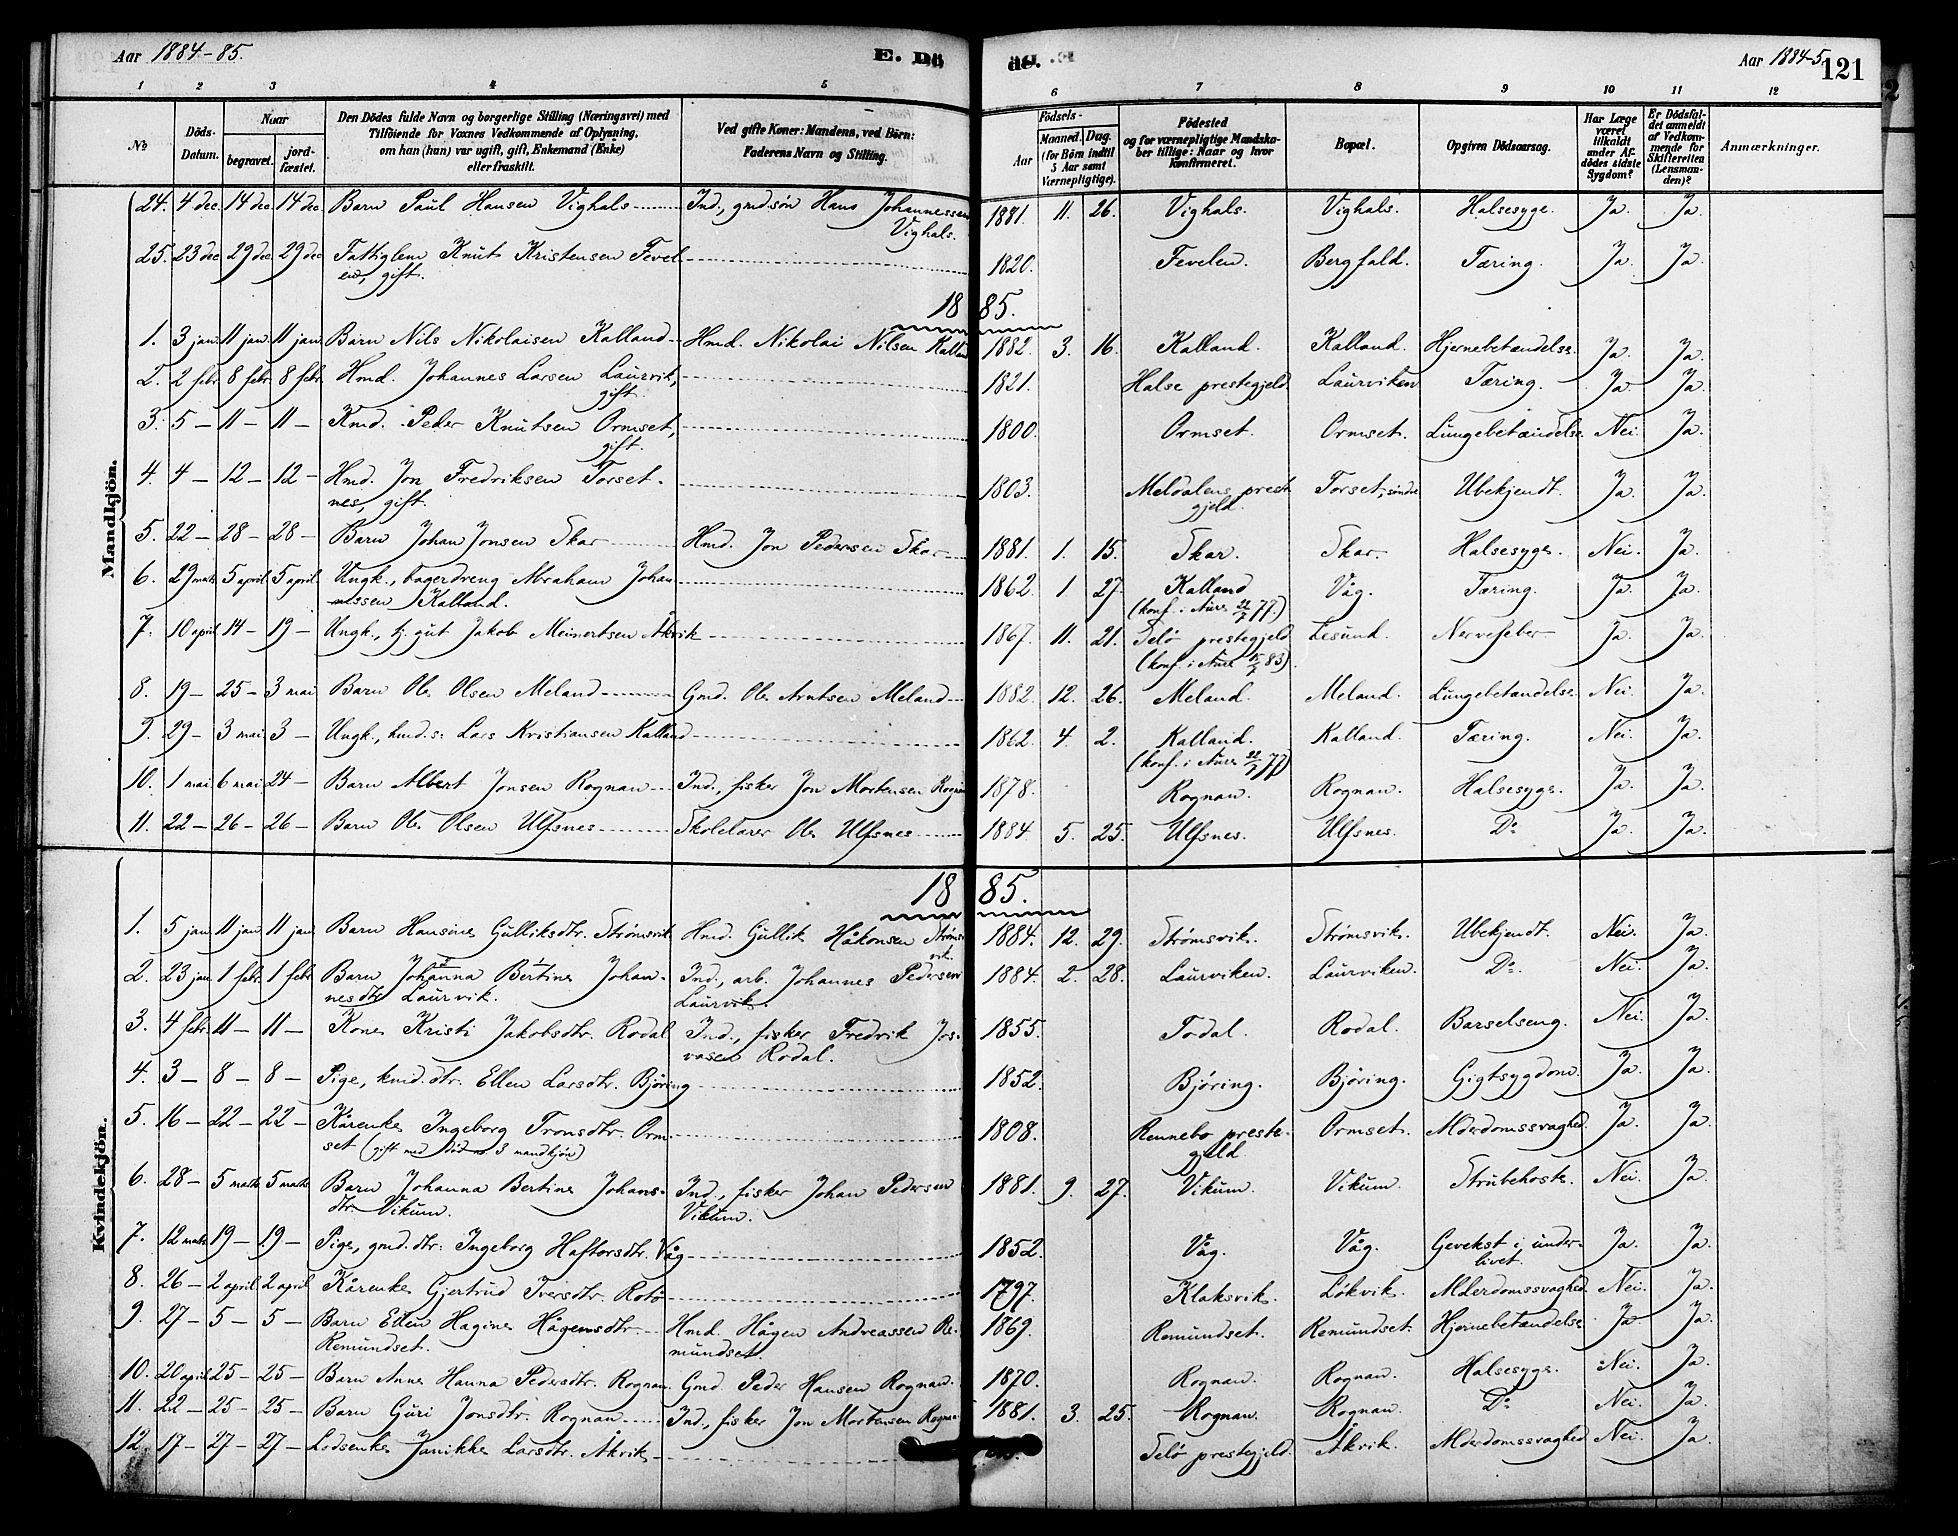 Aar 1884-85.
E. Dö
de.
Aar 1884-5.
121
1 2 3 4 5 6 7 8 9 10 11 12
No
Döds-Datum.
Naar
begravet.
jord-fæstet.
Den Dödes fulde Navn og borgerlige Stilling (Næringsvei) med
Tilföiende for Voxnes Vedkommende af Oplysning,
om han (hun) var ugift, gift, Enkemand (Enke)
eller fraskilt.
Ved gifte Koner: Mandens, ved Börn:
Faderens Navn og Stilling.
Födsels-
Aar
Maaned. Dag.
(for Börn indtil
5 Aar samt
Værnepligtige).
Födested
og for værnepligtige Mandska-
ber tillige: Naar og hvor
konfirmeret.
Bopæl.
Opgiven Dödsaarsag.
Har Læge
været
tilkaldt
under Af-
dødes sidste
Sygdom?
Er Dödsfal-
det anmeldt
af Vedkom-
mende for
Skifteretten
(Lensman-
den)?
Anmærkninger.
Mandkjön.
24. 4 dec 14 dec 14 dec Barn Paul Hansen Vighals Ind., gmd.søn Hans Johannessen 1881. 11. 26. Vighals. Vighals. Halsesyge. Ja. Ja.
Vighals.
25. 23 dec 29 dec 29 dec Fattiglem Knut Kristensen Fevel- 1820. Fevelen. Bergfald. Tæring. Ja. Ja.
en, gift.
1885.
1. 3 jan 11 jan. 11 jan. Barn Nils Nikolaisen Kalland Hmd. Nikolai Nilsen Kalland 1882. 3. 16. Kalland. Kalland. Hjernebetændelse. Ja. Ja.
2. 2 febr 8 febr 8 febr. Hmd. Johannes Larsen Laurvik, 1821. Halse prestegjeld Laurviken Tæring. Ja. Ja.
gift.
3. 5 — 11 — 11 — Kmd. Peder Knutsen Ormset, 1800. Ormset. Ormset. Lungebetændelse. Nei. Ja.
gift.
4. 4 — 12 — 12 — Hmd. Jon Fredriksen Torset- 1803. Meldalens prest Torset, søndre Ubekjendt. Ja. Ja.
nes, gift. gjeld.
5. 22 — 28 — 28 — Barn Johan Jonsen Skar Hmd. Jon Pedersen Skar 1881. 1. 15. Skar. Skar. Halsesyge. Nei. Ja.
6. 29 mats 5 april 5 april. Ungk., Bagerdreng Abraham Johan- 1862. 1 27. Kalland Våg. Tæring. Ja. Ja.
nessen Kalland. (konf. i Aure 22/7 77.)
7. 10 april 14 — 19 — Ungk., tj.gut Jakob Meinertsen Åkvik 1867. 11. 21. Edø prestegjeld Lesund. Nervefeber Ja. Ja.
(konf. i Aure 15/7 83).
8. 19 — 25 — 3 mai Barn Ole Olsen Meland Gmd. Ole Arntsen Meland 1882. 12. 26. Meland. Meland. Lungebetændelse. Nei. Ja.
9. 29 — 3 mai 3 — Ungk., hmd.s: Lars Kristiansen Kalland 1862. 4. 2. Kalland. Kalland. Tæring. Nei. Ja.
(konf. i Aure 22/7 77)
10. 1 mai 6 mai 24 — Barn Albert Jonsen Rognan Ind., fisker Jon Mortensen Rognan 1878. Rognan. Rognan. Halsesyge. Ja. Ja.
11. 22 — 26 — 26 — Barn Ole Olsen Ulfsnes Skolelærer Ole Ulfsnes 1884 5. 25. Ulfsnes. Ulfsnes. Do Ja. Ja.
Kvindekjön.
1885.
1. 5 jan 11 jan 11 jan. Barn Hansine Gulliksdtr. Strømsvik Hmd. Gullik Håkonsen Strøms- 1884. 12. 29. Strømsvik. Strømsvik. Ubekjendt. Nei. Ja.
vik.
2. 23 jan 1 febr. 1 febr. Barn Johanna Bertine Johan- Ind., arb. Johannes Pedersen 1884. 2. 28. Laurviken. Laurviken. Do. Nei. Ja.
nesdtr Laurvik. Laurvik.
3. 4 febr. 11 — 11 — Kone Kristi Jakobsdtr. Rodal Ind., fisker Fredrik Jos- 1855. Todal. Rodal. Barselseng. Nei. Ja.
vasen Rodal.
4. 3 — 8 — 8 — Pige, kmd.dtr. Ellen Larsdtr. Bjøring 1852. Bjøring. Bjøring. Gigtsygdom. Ja. Ja.
5. 16 — 22 — 22 — Kårenke Ingeborg Tronsdtr. Orm- 1808. Rennebo preste- Ormset. Alderdomssvaghed. Ja. Ja.
set (gift med død no 3 mandkjøn) gjeld
6. 28 — 5 mats 5 mats Barn Johanna Bertine Johans- Ind., fisker Johan Pedersen 1881. 9. 27. Vikum. Vikum. Strubehoste. Nei. Ja.
dtr. Vikum. Vikum.
7. 12 mats 19 — 19 — Pige, gmd.dtr: Ingeborg Haftorsdtr. Våg 1852. Våg. Våg. Gevekst i under- Ja. Ja.
livet.
8. 26 — 2 april. 2 april Kårenke Gjertrud Iversdtr. Rotø 1797. Klaksvik. Løkvik. Alderdomssvaghed Nei. Ja.
9. 27 — 5 — 5 — Barn Ellen Hagine Hågensdtr. Hmd. Hågen Andreassen Re- 1869. Remundset. Remundset. Hjernebetændelse Ja Ja.
Remundset. mundset.
10. 20 april 25 — 25 — Barn Anne Hanna Pedersdtr. Rognan. Gmd Peder Hansen Rognan. 1870. Rognan. Rognan. Halsesyge. Nei. Ja.
11. 22 — 25 — 25 — Barn Guri Jonsdtr. Rognan Ind., fisker Jon Mortensen Rognan 1881. 3. 25. Rognan. Rognan. Do Nei. Ja.
12. 17 — 27 — 27 — Lodsenke Janikke Larsdtr. Åkvik Edø prestegjeld. Åkvik. Alderdomssvaghed Nei. Ja.